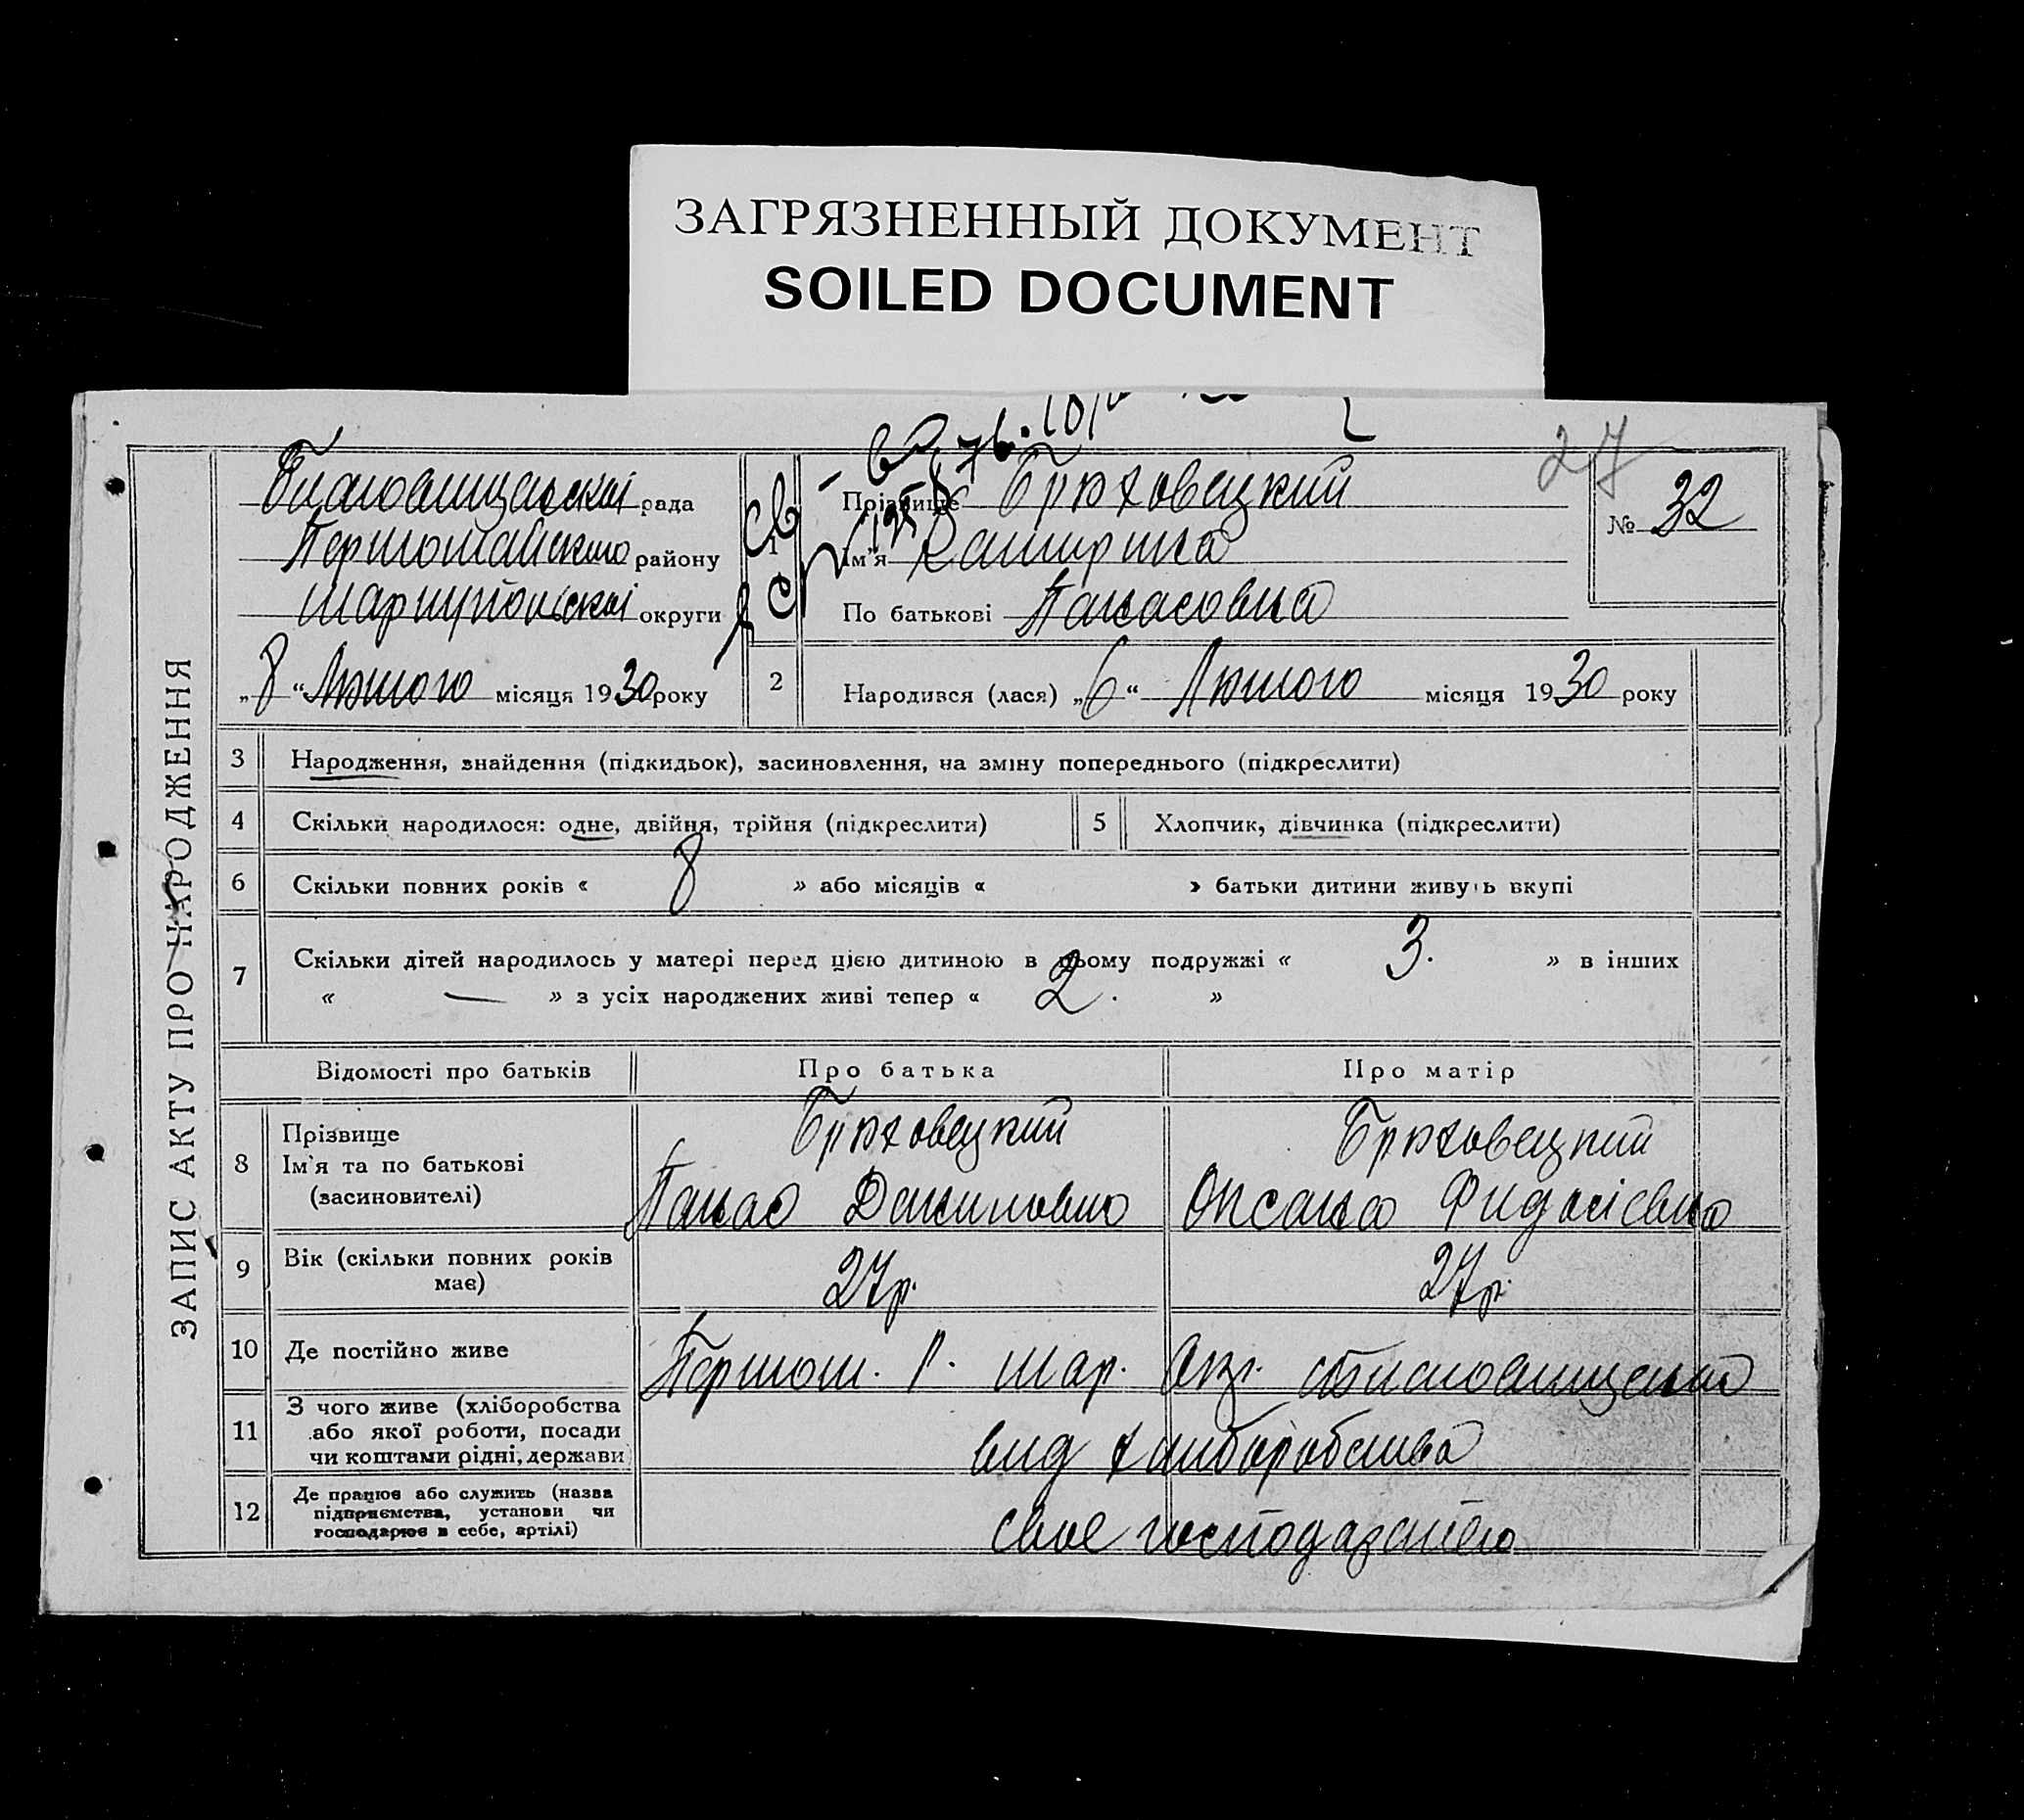 ЗАГРЯЗНЕННЫЙ ДОКУМЕНТ
SOILED DOCUMENT
27
ЗАПИС АКТУ ПРО НАРОДЖЕННЯ
рада
району
округи
„8“ Лютого місяця 1930 року
1
Прізвище Брюховецкий
Ім'я
По батькові Панасовна
№ 32
2
Народився (лася) „6“ Лютого місяця 1930 року
3 Народження, знайдення (підкидьок), засиновлення, на зміну попереднього (підкреслити)
4 Скільки народилося: одне, двійня, трійня (підкреслити)
5 Хлопчик, дівчинка (підкреслити)
6 Скільки повних років « 8 » або місяців « » батьки дитини живуть вкупі
7 Скільки дітей народилось у матері перед цією дитиною в цьому подружжі « 3. » в інших
« — » з усіх народжених живі тепер « 2. »
Відомості про батьків Про батька Про матір
8 Прізвище
Ім'я та по батькові
(засиновителі)
Брюховецкий
Панас
Брюховецкий
Оксана
9 Вік (скільки повних років
має)
27р.
27р.
10 Де постійно живе
Першом. Р. Мар. Окр.
11 З чого живе (хліборобства
або якої роботи, посади
чи коштами рідні, держави)
вид хлиборобства
12 Де працює або служить (назва
підприємства, установи чи
господарює в себе, артілі)
свое